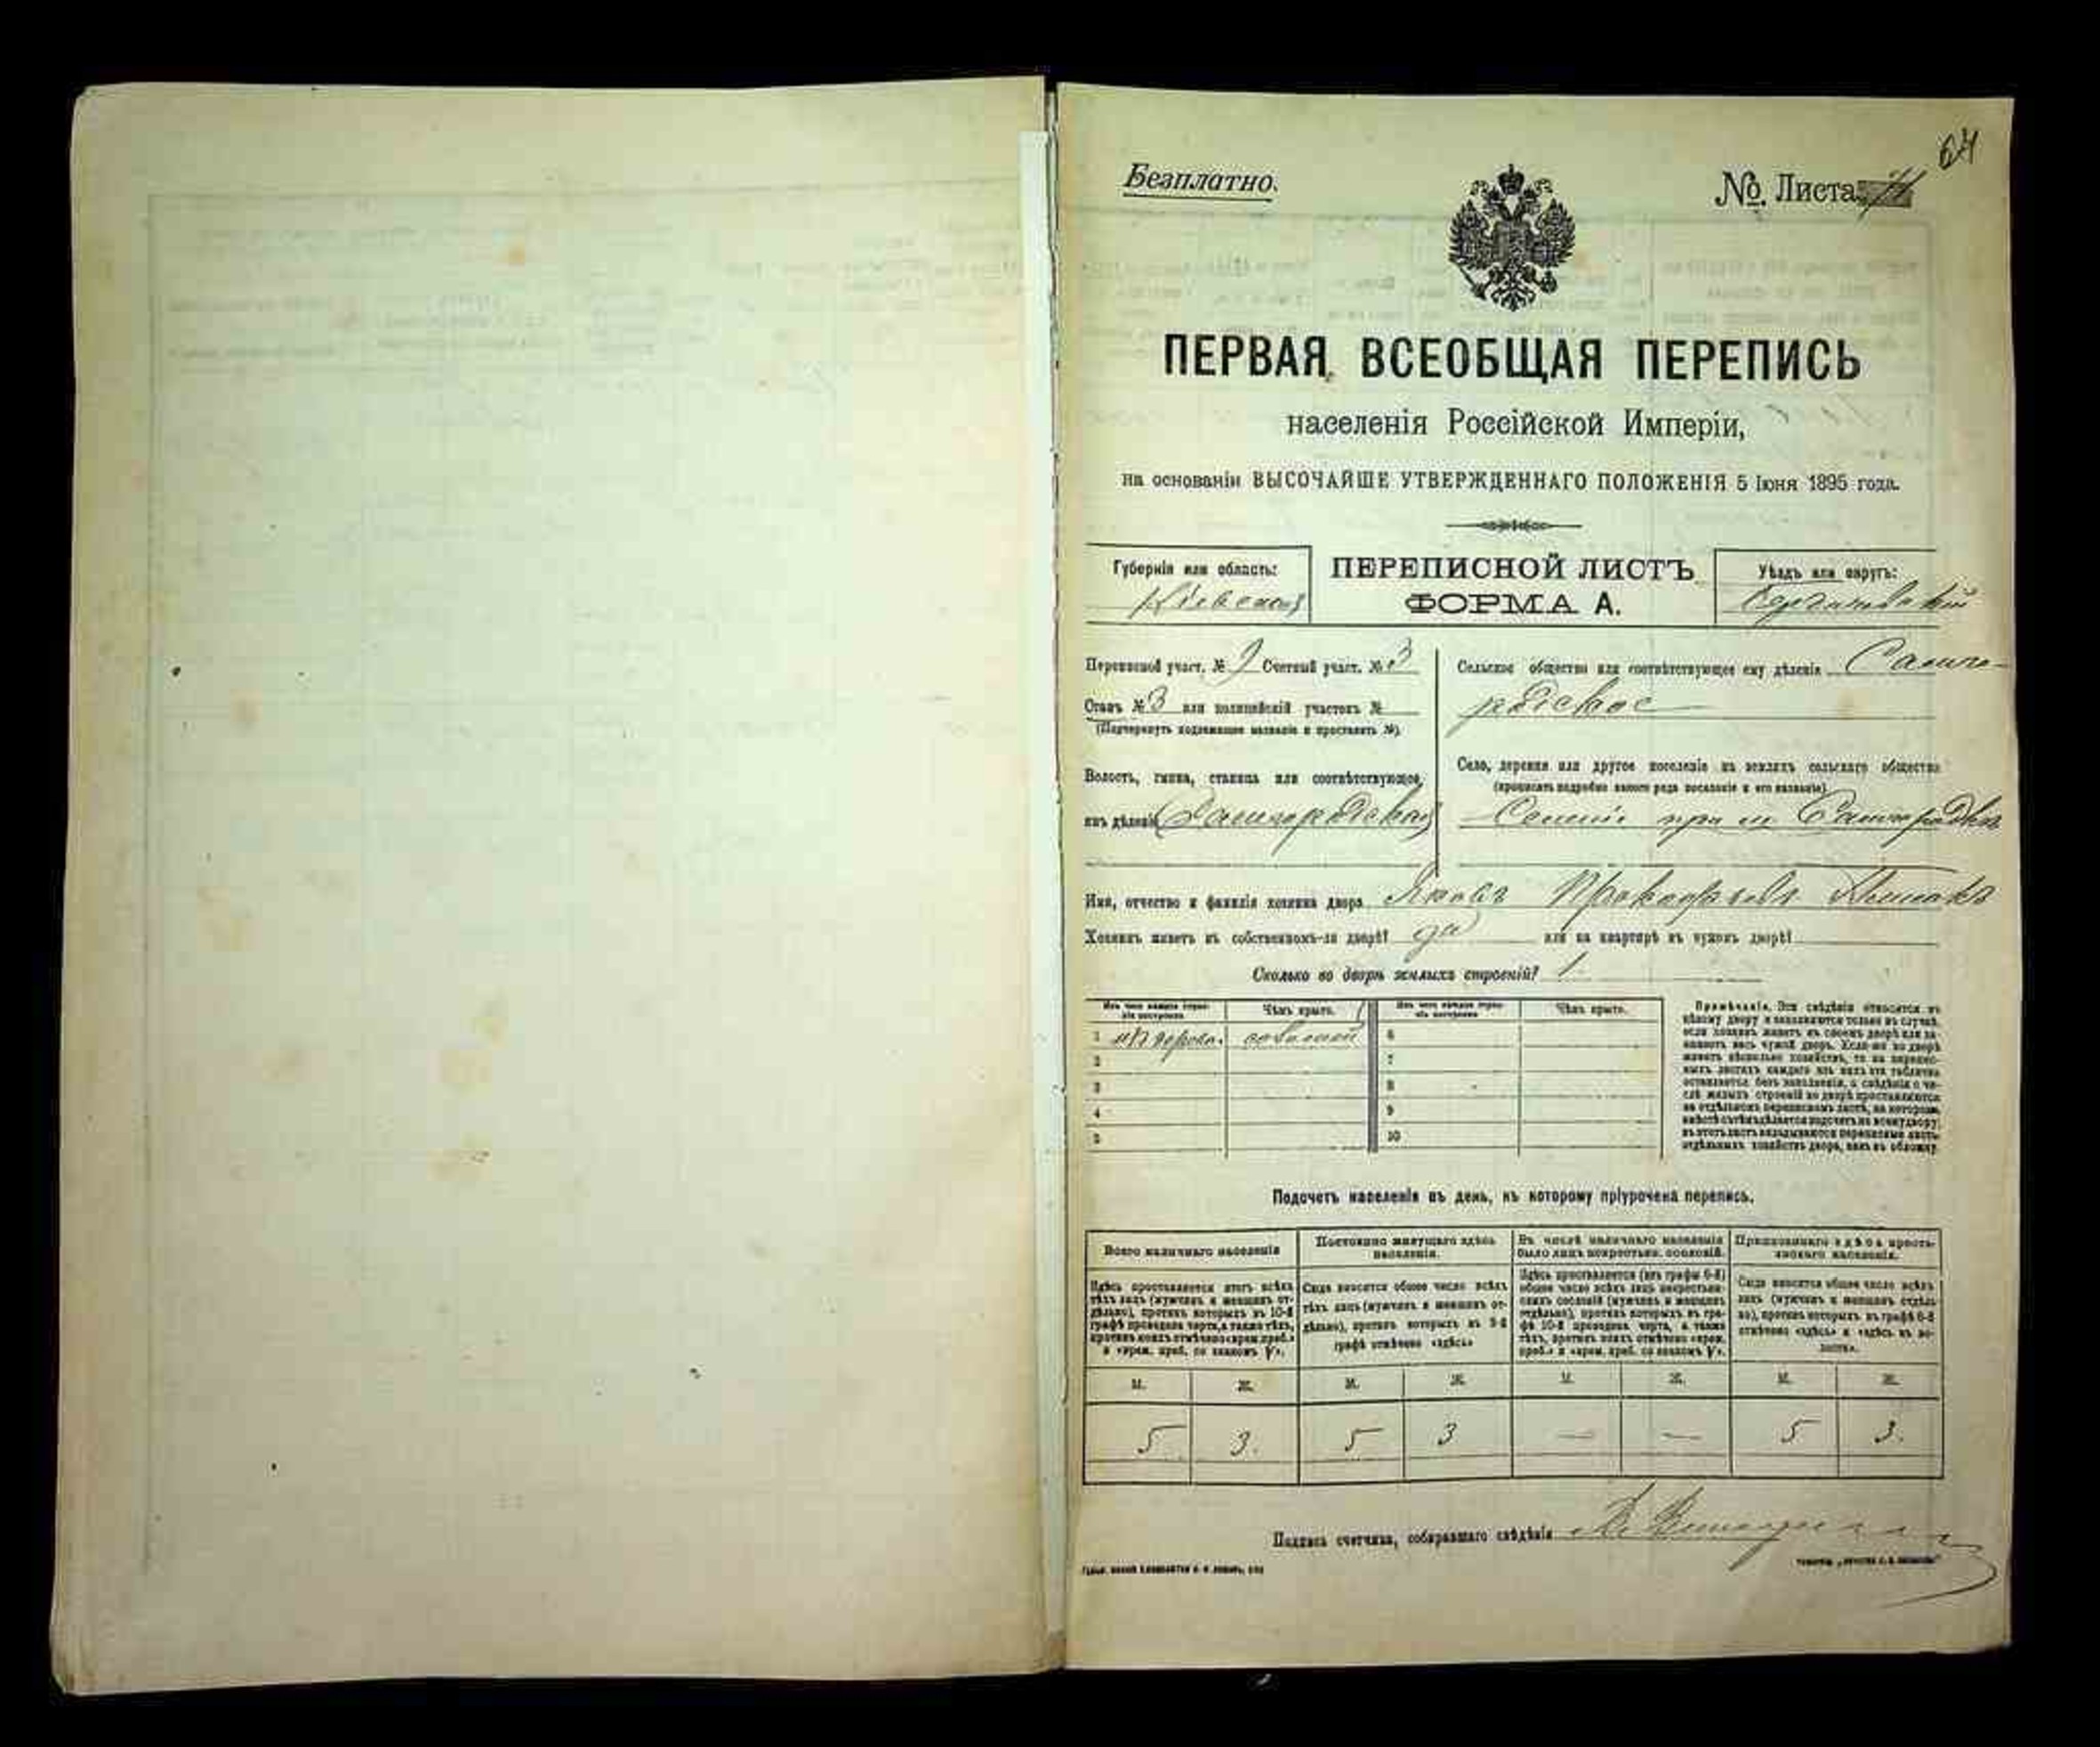 64
Безплатно.
№. Листа
ПЕРВАЯ ВСЕОБЩАЯ ПЕРЕПИСЬ
населенія Россійской Имперіи,
на основаніи ВЫСОЧАЙШЕ УТВЕРЖДЕННАГО ПОЛОЖЕНІЯ 5 Іюня 1895 года.
Губернія или область:
Кіевская
ПЕРЕПИСНОЙ ЛИСТЪ
ФОРМА А.
Уѣздъ или округъ:
Бердичевскій
Переписной участ. № 9 Счетный участ. № 3
Станъ № 3 или полицейскій участокъ №
(Подчеркнуть подлежащее названіе и проставить №).
Волость, гмина, станица или соотвѣтствующее
имъ дѣленіе Самгородская
Сельское общество или соотвѣтствующее ему дѣленіе Самго-
родское
Село, деревня или другое поселеніе на земляхъ сельскаго общества
(прописать подробно какого рода поселеніе и его названіе)
при м Самгородкѣ
Имя, отчество и фамилія хозяина двора Яковъ Прокофьевъ
Хозяинъ живетъ въ собственномъ-ли дворѣ? да или на квартирѣ въ чужомъ дворѣ?
Сколько во дворѣ жилыхъ строеній? 1
Изъ чего каждое строе-
ніе построено.
Чѣмъ крыто.
Изъ чего каждое строе-
ніе построено.
Чѣмъ крыто.
1 изъ дерева. соломой 6
2 7
3 8
4 9
5 10
Примѣчаніе. Эти свѣдѣнія относятся къ
цѣлому двору и заполняются только въ случаѣ,
если хозяинъ живетъ въ своемъ дворѣ или за-
нимаетъ весь чужой дворъ. Если-же во дворѣ
живетъ нѣсколько хозяйствъ, то на перепис-
ныхъ листахъ каждаго изъ нихъ эта табличка
оставляется безъ заполненія, а свѣдѣнія о чи-
слѣ жилыхъ строеній во дворѣ проставляются
на отдѣльномъ переписномъ листѣ, на которомъ
вмѣстѣ съ тѣмъ дѣлается подсчетъ по всему двору;
въ этотъ листъ вкладываются переписные листы
отдѣльныхъ хозяйствъ двора, какъ въ обложку.
Подсчетъ населенія въ день, къ которому пріурочена перепись.
Всего наличнаго населенія
Постоянно живущаго здѣсь
населенія.
Въ числѣ наличнаго населенія
было лицъ некрестьян. сословій.
Приписаннаго здѣсь кресть-
янскаго населенія.
Здѣсь проставляется итогъ всѣхъ
тѣхъ лицъ (мужчинъ и женщинъ от-
дѣльно), противъ которыхъ въ 10-й
графѣ проведена черта, а также тѣхъ,
противъ коихъ отмѣчено «врем. преб.»
и «врем. преб. со знакомъ V».
Сюда вносится общее число всѣхъ
тѣхъ лицъ (мужчинъ и женщинъ от-
дѣльно), противъ которыхъ въ 9-й
графѣ отмѣчено «здѣсь»
Здѣсь проставляется (изъ графы 6-й)
общее число всѣхъ лицъ некрестьян-
скихъ сословій (мужчинъ и женщинъ
отдѣльно), противъ которыхъ въ гра-
фѣ 10-й проведена черта, а также
тѣхъ, противъ коихъ отмѣчено «врем.
преб.» и «врем. преб. со знакомъ V».
Сюда вносится общее число всѣхъ
лицъ (мужчинъ и женщинъ отдѣль-
но), противъ которыхъ въ графѣ 8-й
отмѣчено «здѣсь» и «здѣсь въ во-
лости».
М. Ж. М. Ж. М. Ж. М. Ж.
5 3. 5 3 — — 5 3.
Подпись счетчика, собиравшаго свѣдѣнія